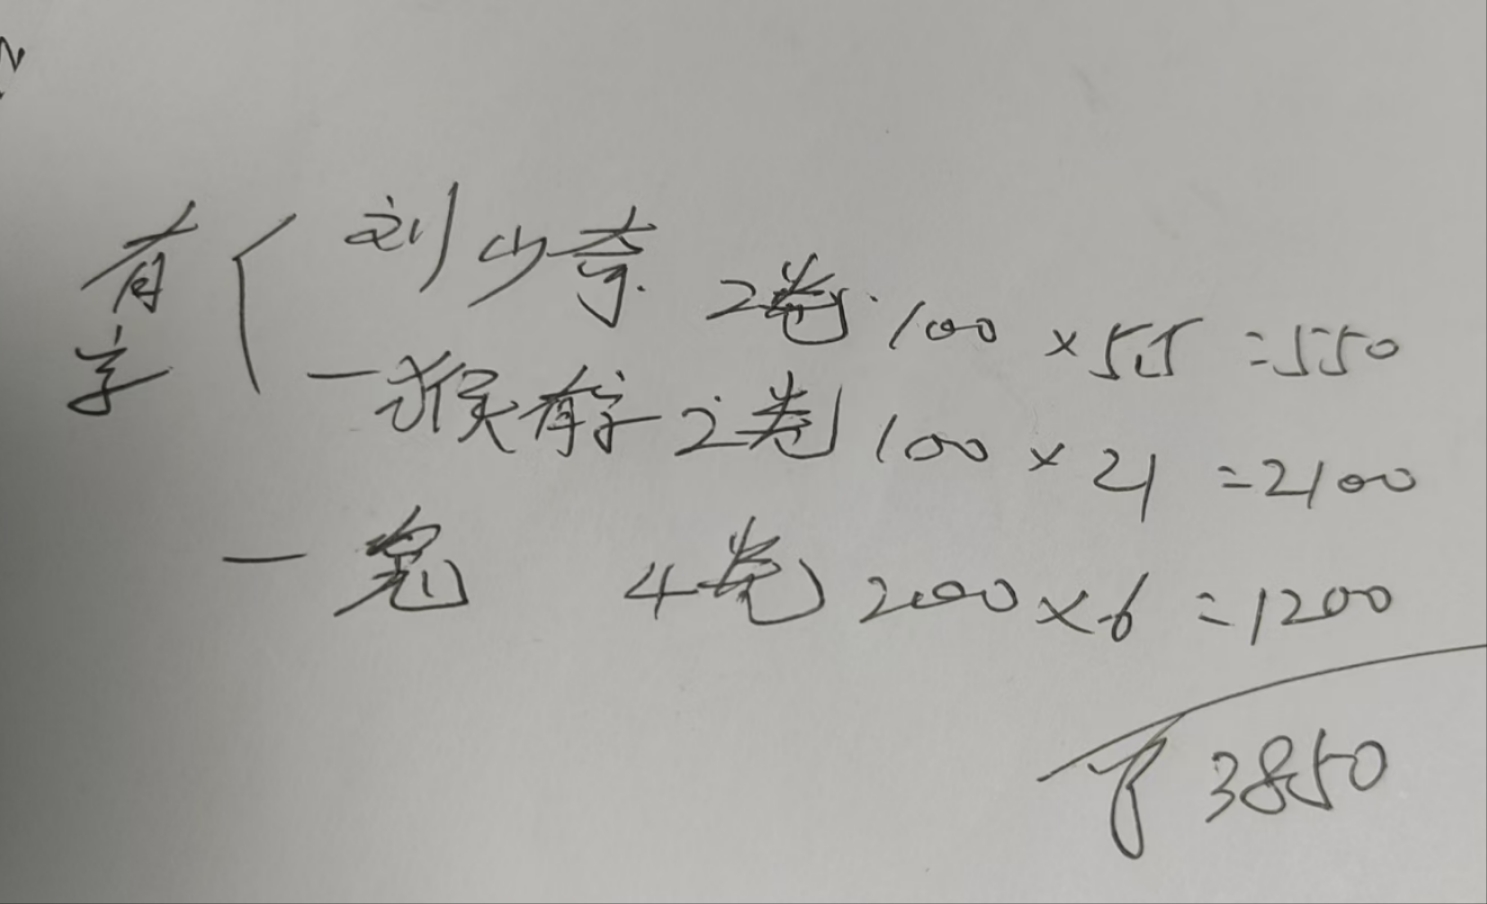 有字
刘少奇 2卷 100×5.5=550
一猴有字2卷 100×21=2100
一兔 4卷 200×6=1200
3850